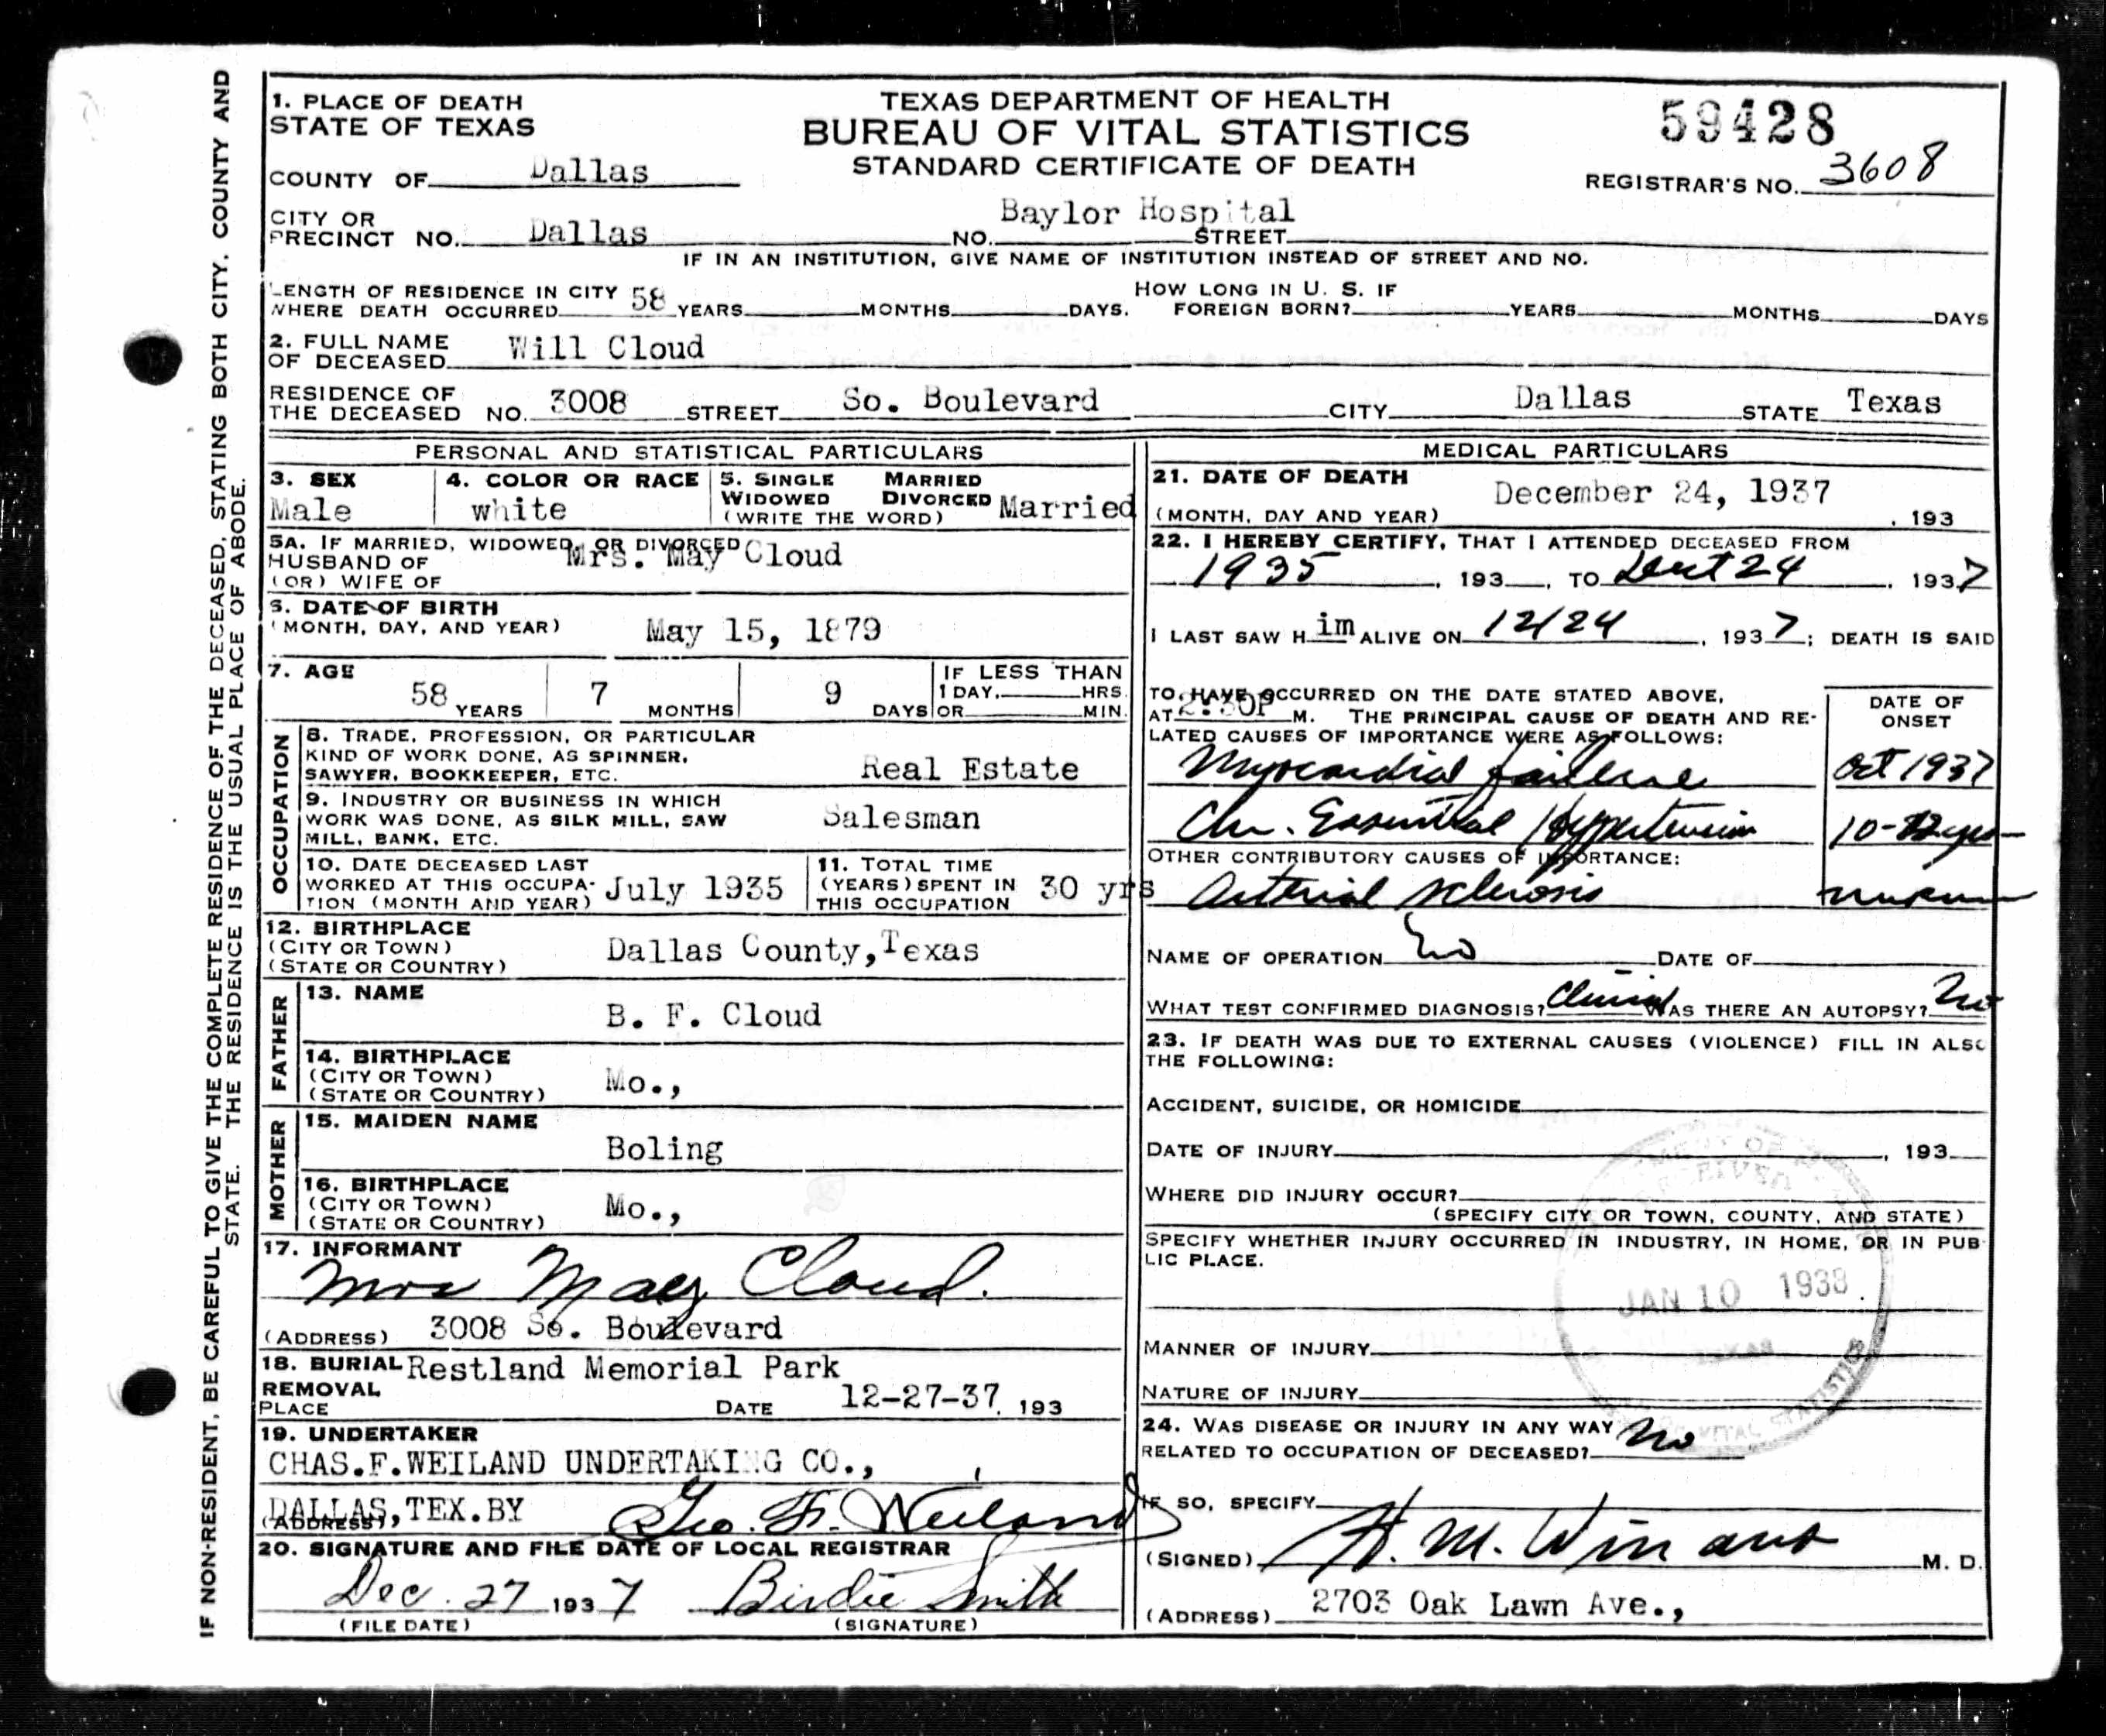 IF NON-RESIDENT, BE CAREFUL TO GIVE THE COMPLETE RESIDENCE OF THE DECEASED, STATING BOTH CITY, COUNTY AND
STATE. THE RESIDENCE IS THE USUAL PLACE OF ABODE.
1. PLACE OF DEATH
STATE OF TEXAS
TEXAS DEPARTMENT OF HEALTH
BUREAU OF VITAL STATISTICS
STANDARD CERTIFICATE OF DEATH
59428
COUNTY OF Dallas
REGISTRAR'S NO. 3608
CITY OR
PRECINCT NO. Dallas NO. Baylor Hospital STREET
IF IN AN INSTITUTION, GIVE NAME OF INSTITUTION INSTEAD OF STREET AND NO.
LENGTH OF RESIDENCE IN CITY
WHERE DEATH OCCURRED 58 YEARS MONTHS DAYS.
HOW LONG IN U. S. IF
FOREIGN BORN? YEARS MONTHS DAYS
2. FULL NAME
OF DECEASED Will Cloud
RESIDENCE OF
THE DECEASED NO. 3008 STREET So. Boulevard CITY Dallas STATE Texas
PERSONAL AND STATISTICAL PARTICULARS
3. SEX
Male
4. COLOR OR RACE
white
5. SINGLE MARRIED
WIDOWED DIVORCED
(WRITE THE WORD) Married
5A. IF MARRIED, WIDOWED, OR DIVORCED
HUSBAND OF Mrs. May Cloud
(OR) WIFE OF
6. DATE OF BIRTH
(MONTH, DAY, AND YEAR) May 15, 1879
7. AGE
58 YEARS 7 MONTHS 9 DAYS
IF LESS THAN
1 DAY, HRS.
OR MIN.
OCCUPATION
8. TRADE, PROFESSION, OR PARTICULAR
KIND OF WORK DONE, AS SPINNER,
SAWYER, BOOKKEEPER, ETC. Real Estate
9. INDUSTRY OR BUSINESS IN WHICH
WORK WAS DONE, AS SILK MILL, SAW
MILL, BANK, ETC. Salesman
10. DATE DECEASED LAST
WORKED AT THIS OCCUPA-
TION (MONTH AND YEAR) July 1935
11. TOTAL TIME
(YEARS) SPENT IN
THIS OCCUPATION 30 yrs
12. BIRTHPLACE
(CITY OR TOWN)
(STATE OR COUNTRY) Dallas County, Texas
FATHER
13. NAME
B. F. Cloud
14. BIRTHPLACE
(CITY OR TOWN)
(STATE OR COUNTRY) Mo.,
MOTHER
15. MAIDEN NAME
Boling
16. BIRTHPLACE
(CITY OR TOWN)
(STATE OR COUNTRY) Mo.,
17. INFORMANT
Mrs May Cloud.
(ADDRESS) 3008 So. Boulevard
18. BURIAL Restland Memorial Park
REMOVAL
PLACE DATE 12-27-37, 193
19. UNDERTAKER
CHAS.F.WEILAND UNDERTAKING CO.,
DALLAS,TEX.BY Geo. F. Weiland
(ADDRESS)
20. SIGNATURE AND FILE DATE OF LOCAL REGISTRAR
Dec. 27 1937 Birdie Smith
(FILE DATE) (SIGNATURE)
MEDICAL PARTICULARS
21. DATE OF DEATH
December 24, 1937
(MONTH, DAY AND YEAR) , 193
22. I HEREBY CERTIFY, THAT I ATTENDED DECEASED FROM
1935, 193 , TO 24, 1937
I LAST SAW Him ALIVE ON 12/24, 1937; DEATH IS SAID
TO HAVE OCCURRED ON THE DATE STATED ABOVE,
AT 2:30P M. THE PRINCIPAL CAUSE OF DEATH AND RE-
LATED CAUSES OF IMPORTANCE WERE AS FOLLOWS:
DATE OF
ONSET
Myocardial failure Oct 1937
Chr. Essential Hypertension 10-12 yrs
OTHER CONTRIBUTORY CAUSES OF IMPORTANCE:
Arterial sclerosis
NAME OF OPERATION No DATE OF
WHAT TEST CONFIRMED DIAGNOSIS? Clinical WAS THERE AN AUTOPSY? No
23. IF DEATH WAS DUE TO EXTERNAL CAUSES (VIOLENCE) FILL IN ALSO
THE FOLLOWING:
ACCIDENT, SUICIDE, OR HOMICIDE
DATE OF INJURY , 193
WHERE DID INJURY OCCUR?
(SPECIFY CITY OR TOWN, COUNTY, AND STATE)
SPECIFY WHETHER INJURY OCCURRED IN INDUSTRY, IN HOME, OR IN PUB-
LIC PLACE.
RECEIVED
JAN 10 1938
TEXAS
VITAL STATISTICS
MANNER OF INJURY
NATURE OF INJURY
24. WAS DISEASE OR INJURY IN ANY WAY
RELATED TO OCCUPATION OF DECEASED? No
IF SO, SPECIFY
(SIGNED) H. M. Winans M. D.
(ADDRESS) 2703 Oak Lawn Ave.,